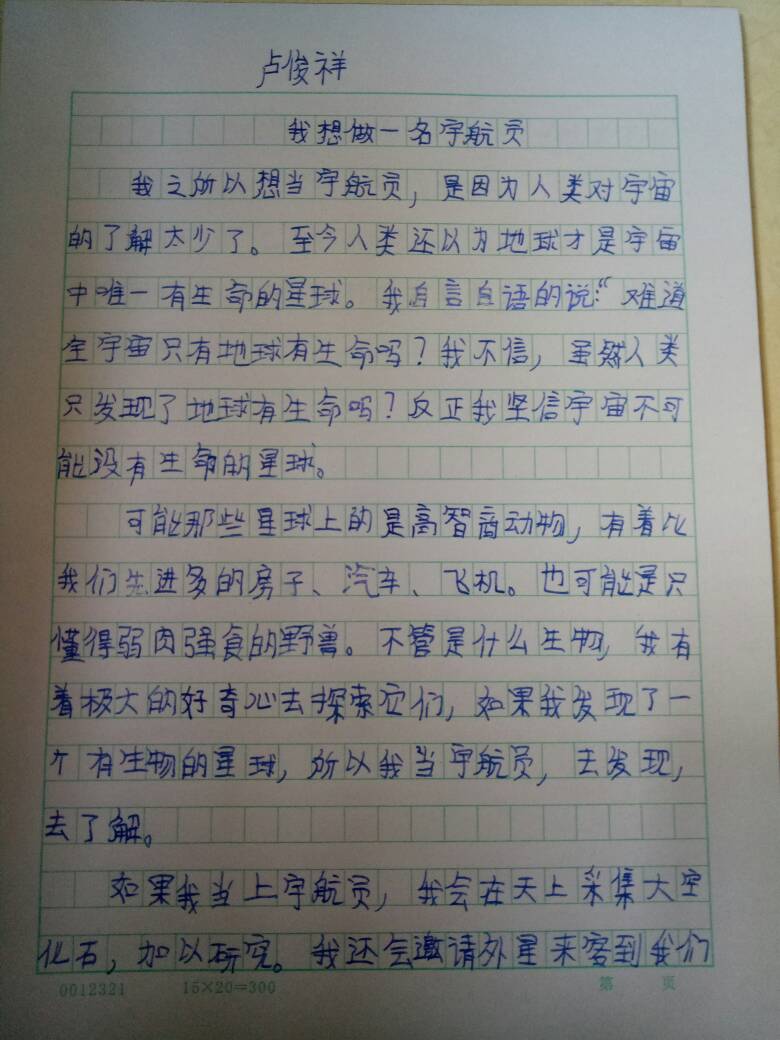 卢俊祥
我想做一名宇航员
我之所以想当宇航员，是因为人类对宇宙
的了解太少了。至今人类还以为地球才是宇宙
中唯一有生命的星球。我自言自语的说：“难道
全宇宙只有地球有生命吗？我不信，虽然人类
只发现了地球有生命吗？反正我坚信宇宙不可
能没有生命的星球。
可能那些星球上的是高智商动物，有着比
我们先进多的房子、汽车、飞机。也可能是只
懂得弱肉强食的野兽。不管是什么生物，我有
着极大的好奇心去探索它们，如果我发现了一
个有生物的星球，所以我当宇航员，去发现，
去了解。
如果我当上宇航员，我会在天上采集太空
化石，加以研究。我还会邀请外星来客到我们
0012321 15×20=300 第 页